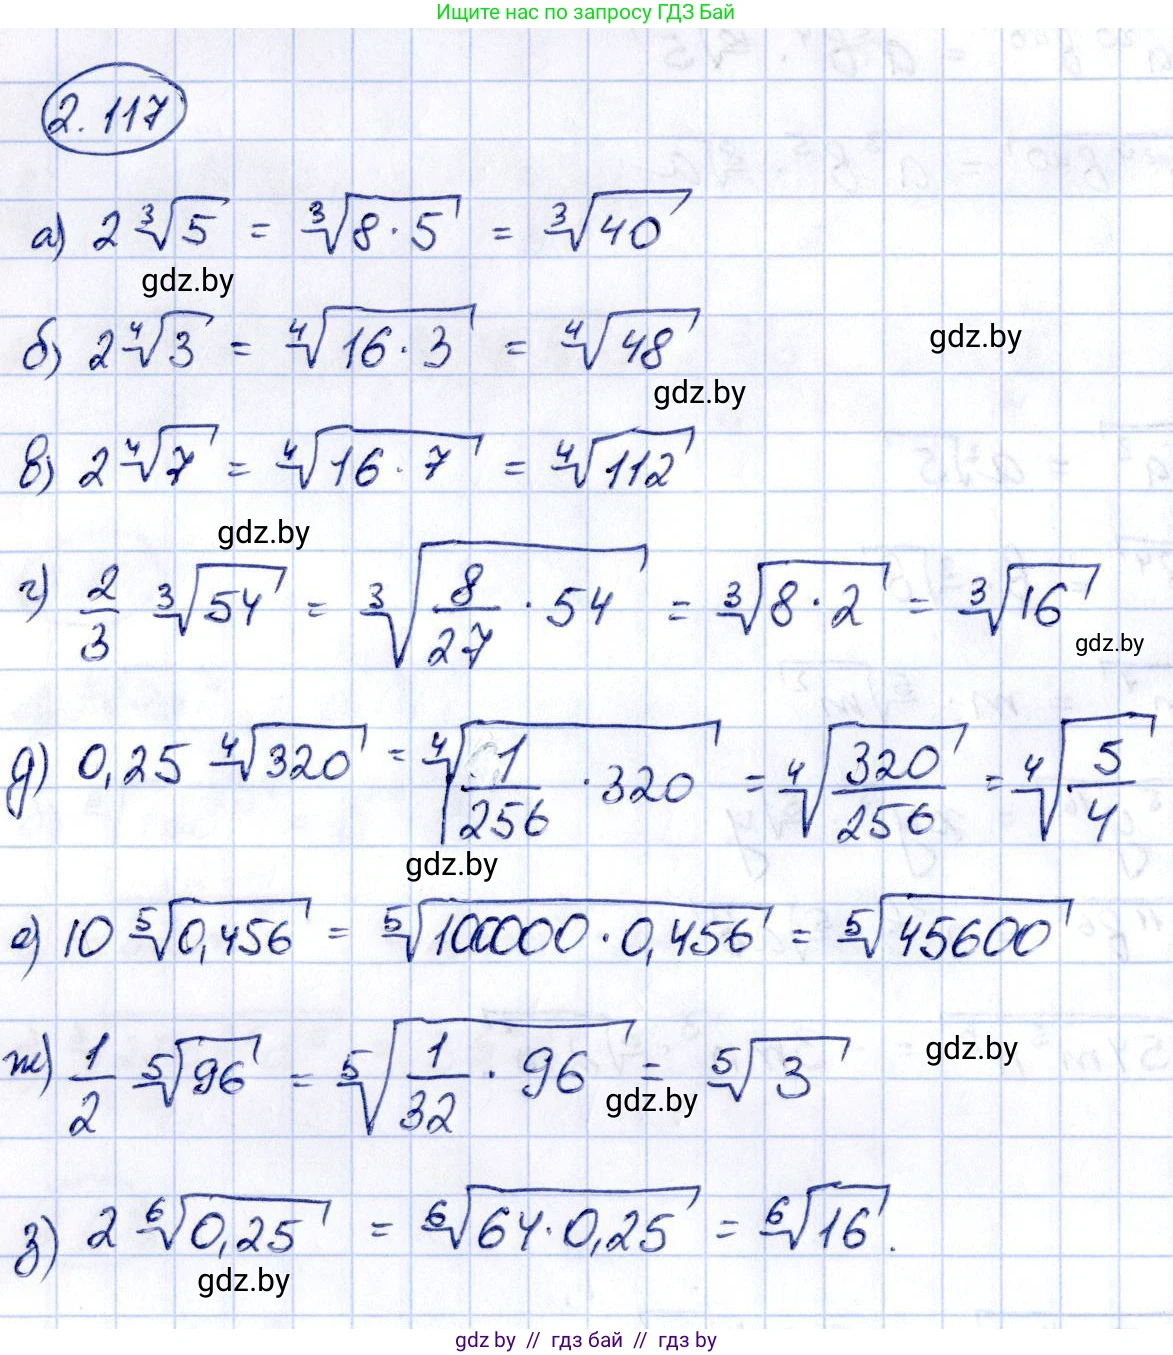 Ищите нас по запросу ГДЗ Бай
2.117
а) 2∛5 = ∛(8·5) = ∛40
gdz.by
б) 2∜3 = ∜(16·3) = ∜48
gdz.by
gdz.by
в) 2∜7 = ∜(16·7) = ∜112
gdz.by
г) 2/3 ∛54 = ∛(8/27 · 54) = ∛(8·2) = ∛16
gdz.by
д) 0,25 ∜320 = ∜(1/256 · 320) = ∜(320/256) = ∜(5/4)
gdz.by
е) 10 ⁵√0,456 = ⁵√(100000·0,456) = ⁵√45600
ж) 1/2 ⁵√96 = ⁵√(1/32 · 96) = ⁵√3
gdz.by
gdz.by
з) 2 ⁶√0,25 = ⁶√(64·0,25) = ⁶√16.
gdz.by
gdz by // гдз бай // gdz by